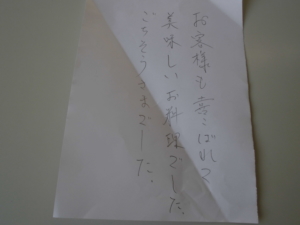 お客様も喜こばれて
美味しいお料理でした。
ごちそうさまでした。